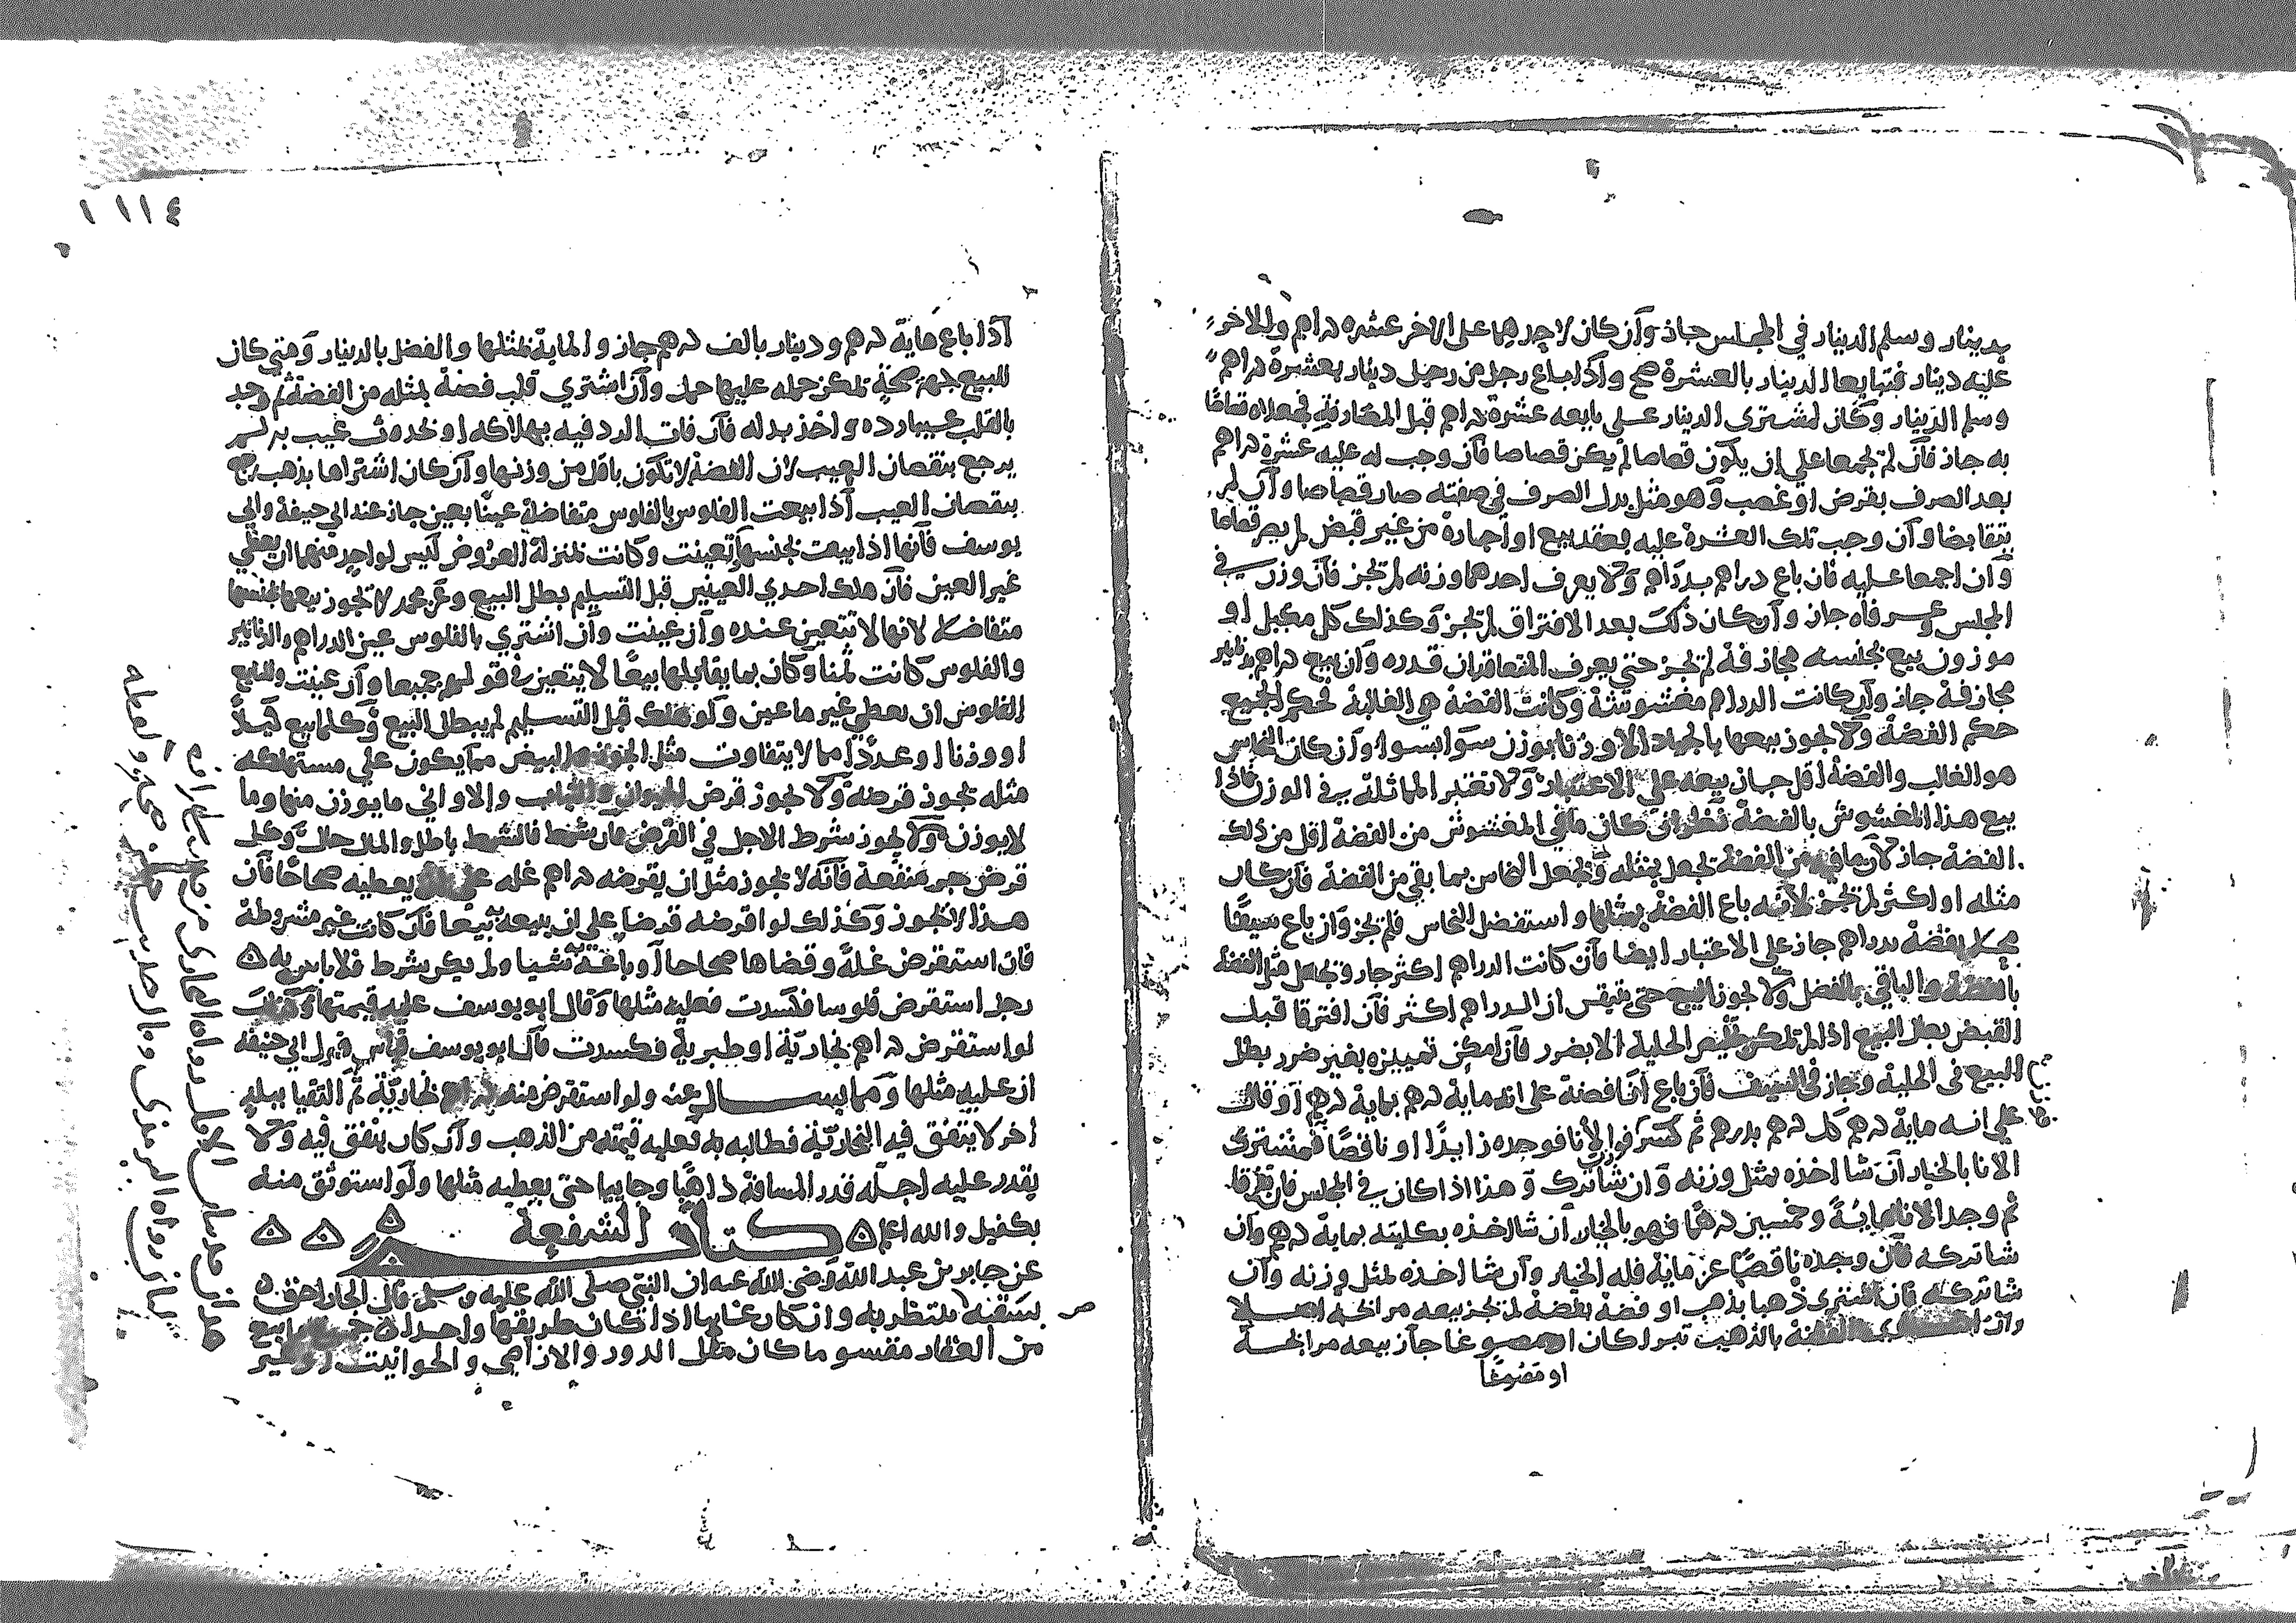 بدينار وسلم الدينار في المجلس جاز وان كان لاحدهما على الاخر عشرة دراهم وللاخر
عليه دينار فتبايعا الدينار بالعشرة صح واذا باع رجل من رجل دينار بعشرة دراهم
وسلم الدينار وكان لمشتري الدينار على بايعه عشرة دراهم قبل المصارفة فجعلاه قصاصا
به جاز فان لم يجمعا على ان يكون قصاصا لم يكن قصاصا فان وجب له عليه عشرة دراهم
بعد الصرف بقرض او غصب وهو مثل بدل الصرف في صفته صار قصاصا وان لم
يتقابضا وان وجب تلك العشرة عليه بعقد بيع او اجارة من غير قبض لم يصر قصاصا
وان اجمعا عليه فان باع دراهم بدراهم ولا يعرف احدهما وزنه لم تجز فان وزن في
المجلس وعرفاه جاز وان كان ذلك بعد الافتراق لم تجز وكذلك كل مكيل او
موزون بيع بجنسه مجازفة لم تجز حتى يعرف المتعاقدان قدره وان بيع دراهم بدنانير
مجازفة جاز وان كانت الدراهم مغشوشة وكانت الفضة هي الغالبة فحكم الجميع
حكم الفضة ولا يجوز بيعها بالجياد الا وزنا بوزن سوا بسوا وان كان النحاس
هو الغالب والفضة اقل جاز بيعه على الاعتبار ولا تعتبر المماثلة في الوزن فاذا
بيع هذا المغشوش بالفضة فنظر ان كان ما في المغشوش من الفضة اقل من ذلك
الفضة جاز لان ما فيه من الفضة تجعل بمثله وتجعل النحاس بما بقي من الفضة فان كان
مثله او اكثر لم تجز لانه باع الفضة بمثلها واستفضل النحاس فلم تجز وان باع سيفا
محلى بفضة بدراهم جاز على الاعتبار ايضا فان كانت الدراهم اكثر جاز وتجعل مثل الفضة
بالفضة والباقي بالفضل ولا يجوز البيع حتى يتيقن ان الدراهم اكثر فان افترقا قبل
القبض بطل البيع اذا لم تكن تخليص الحلية الا بضرر فان امكن تمييزه بغير ضرر بطل
البيع في الحلية وجاز في السيف فان باع انا فضة على انه ماية درهم بماية درهم او قال
على انه ماية درهم كل درهم بدرهم ثم كسر فوا الانا فوجده زايدا او ناقصا فمشتري
الانا بالخيار ان شا اخذه بمثل وزنه وان شا ترك وهذا اذا كان في المجلس فان تفرقا
ثم وجد الانا ماية وخمسين درهما فهو بالخيار ان شا اخذه بكليته بماية درهم وان
شا تركه فان وجده ناقصا عن ماية فله الخيار وان شا اخذه بمثل وزنه وان
شا تركه فان اشترى ذهبا بذهب او فضة بفضة لم تجز بيعه مرابحة اصلا
وان بالذهب تبرا كان او مصوغا جاز بيعه مرابحة
او مصوغا
١١٤
اذا باع ماية درهم ودينار بالف درهم جاز والماية بمثلها والفضل بالدينار ومتى كان
للبيع جهة صحة تمكن حمله عليها حمل وان اشترى قلب فضة بمثله من الفضة ثم وجد
بالقلب عيبا رده واخذ بدله فان فات الرد فيه بهلاكه او بحدوث عيب به لم
يرجع بنقصان العيب لان الفضة لا تكون باقل من وزنها وان كان اشتراها بذهب رجع
بنقصان العيب اذا بيعت الفلوس بالفلوس متفاضلة عينا بعين جاز عند ابي حنيفة وابي
يوسف فانها اذا بيعت بجنسها تعينت وكانت بمنزلة العروض ليس لواحد منهما ان يعطي
غير العين فان هلك احدى العينين قبل التسليم بطل البيع وعن محمد لا تجوز بيعها بجنسها
متفاضلا لانها لا تتعين عنده وان عينت وان اشترى بالفلوس عين الدراهم والدنانير
والفلوس كانت ثمنا وكان بما يقابلها بيعا لا يتعين في قولهم جميعا وان عينت ولبايع
الفلوس ان يعطي غير ما عين ولو هلك قبل التسليم لم يبطل البيع وكلما بيع كيلا
او وزنا او عددا مما لا يتفاوت مثل الجوز والبيض مما يكون على مستهلكه
مثله يجوز قرضه ولا يجوز قرض الحيوان والاواني ما يوزن منها وما
لا يوزن ولا يجوز شرط الاجل في القرض فان شرط فالشرط باطل والمال حال وكل
قرض جر منفعة فانه لا يجوز مثل ان يقرضه دراهم غلة على ان يعطيه صحاحا فان
هذا لا يجوز وكذلك لو اقرضه قرضا على ان يبيعه بيعا فان كانت غير مشروطة
فان استقرض غلة وقضاها صحاحا او باعه شيا ولم يكن بشرط فلا باس به
رجل استقرض فلوسا فكسدت فعليه مثلها وقال ابو يوسف عليه قيمتها وكذلك
لو استقرض دراهم بخارية او طبرية فكسدت قال ابو يوسف قياس قول ابي حنيفة
ان عليه مثلها عنه ولو استقرض منه دراهم بخارية ثم التقيا ببلد
اخر لا يتفق فيه البخارية فطالبه به فعليه قيمته من الذهب وان كان ينفق فيه ولا
يقدر عليه اجله قدر المسافة ذاهبا وجاييا حتى يعطيه مثلها ولو استوثق منه
بكفيل والله اعلم كتاب الشفعة
عن جابر بن عبد الله رضى الله عنه ان النبي صلى الله عليه وسلم قال الجار احق
بشفعته ينتظر به وان كان غايبا اذا كان طريقها واحدا
من العقار مقسو ما كان مثل الدور والاراضي والحوانيت